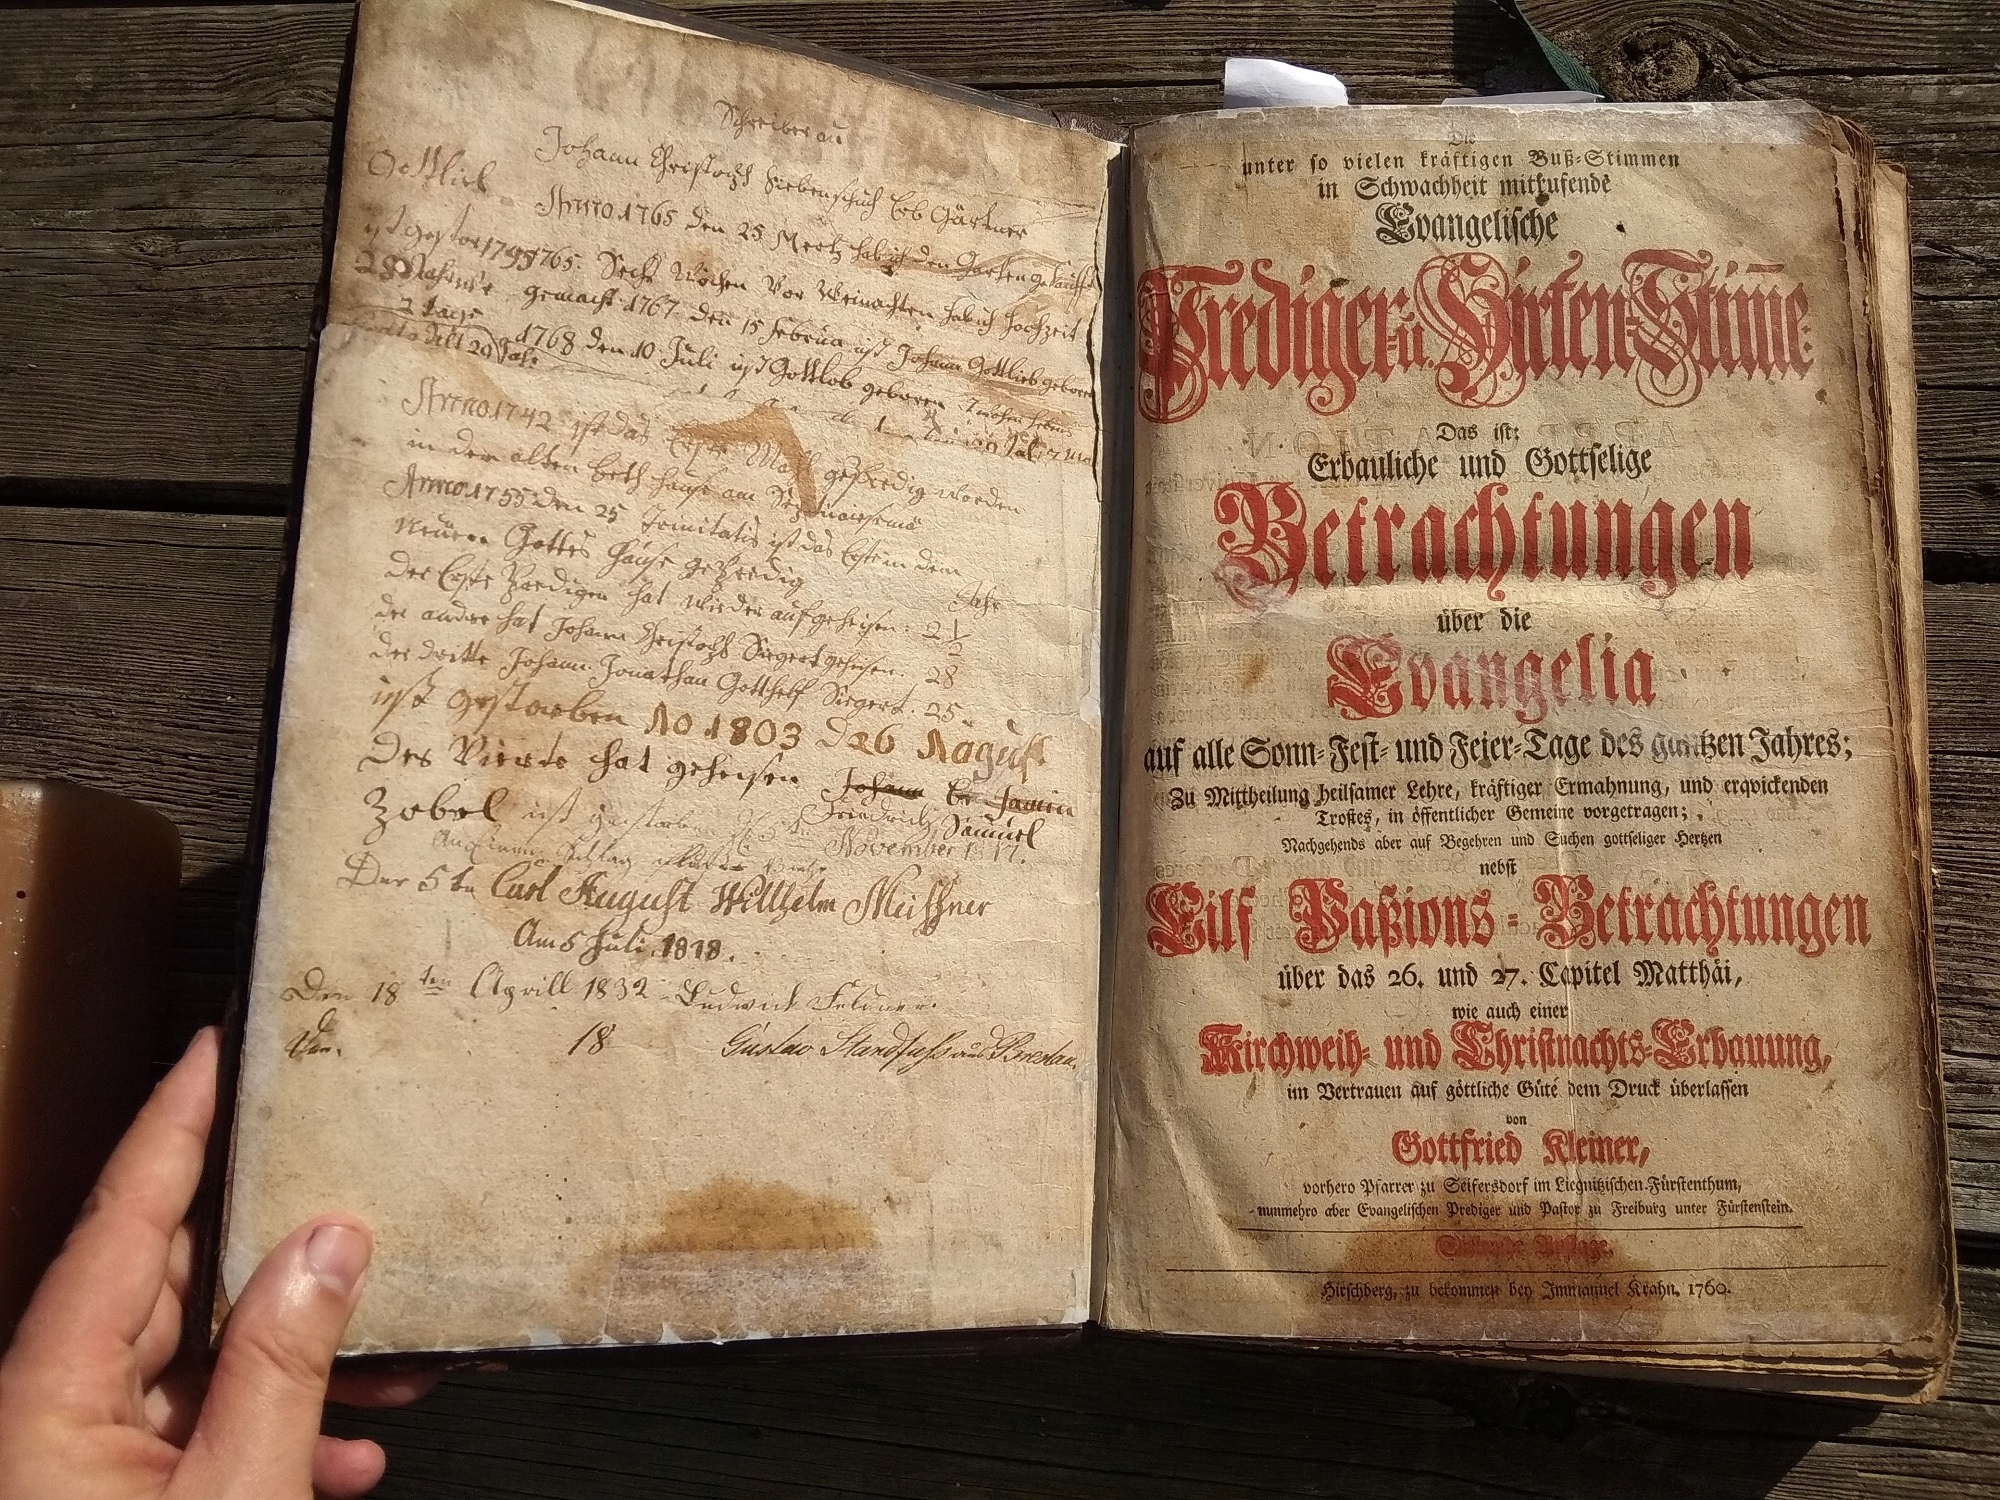 Schreiber au
Johann Christoph Siebenschuh Erb Gärtner
Gottlieb
Anno 1765 den 25 Mertz hab ich den Garten gekauft
ist gestor 1795
1765. Sechs Wochen Vor Weinachten hab ich Hochzeit
28 Jahr
gemacht 1767 den 15 Februa ist Johann Gottlieb geboren
2 tage
1768 den 10 Juli ist Gottlob geboren
alt 29 Jahr
Anno 1742 ist das Erste Mahl gepredig worden
in dem alten beth Hause am
Anno 1755 den 25 Trinitatis ist das Erste in dem
Neuen Gottes Hause gepredig
Jahr
der Erste Predigen hat wieder aufgeheisen: 2 1/2
der andre hat Johann Christoph Siegert geheisen. 28
der dritte Johann Jonathan Gotthelf Siegert. 25
ist gestorben Ao 1803 d 26 August
Der Vierte hat geheisen Johann
Friedrich Samuel
Zobel ist gestorben
November 1817.
Der 5te Carl August Willhelm Meissner
Am 5 Juli. 1818.
Den 18ten Aprill 1832 Ludwich Feldner.
Den. 18 Gustav Standfuss aus Breslau.
Die
unter so vielen kräftigen Buß-Stimmen
in Schwachheit mitrufende
Evangelische
Prediger- u. Hirten-Stim̄e:
Das ist:
Erbauliche und Gottselige
Betrachtungen
über die
Evangelia
auf alle Sonn- Fest- und Feier-Tage des gantzen Jahres;
Zu Mittheilung heilsamer Lehre, kräftiger Ermahnung, und erqvickenden
Trostes, in öffentlicher Gemeine vorgetragen;
Nachgehends aber auf Begehren und Suchen gottseliger Hertzen
nebst
Eilf Paßions-Betrachtungen
über das 26. und 27. Capitel Matthäi,
wie auch einer
Kirchweih- und Christnachts-Erbauung,
im Vertrauen auf göttliche Güte dem Druck überlassen
von
Gottfried Kleiner,
vorhero Pfarrer zu Seifersdorf im Liegnitzischen Fürstenthum,
nunmehro aber Evangelischen Prediger und Pastor zu Freiburg unter Fürstenstein.
Auflage.
Hirschberg, zu bekommen bey Immanuel Krahn. 1760.